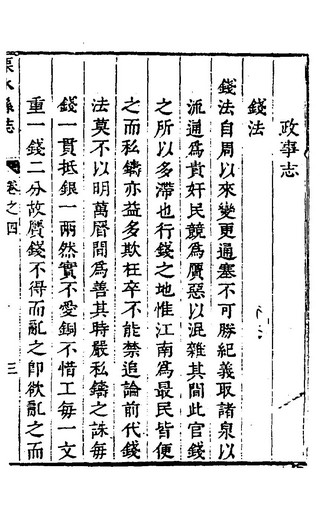 政事志
錢法
錢法自周以來變更通塞不可勝紀義取諸泉以
流通爲貴奸民競爲贋惡以混雜其間此官錢
之所以多滯也行錢之地惟江南爲最民皆便
之而私鑄亦益多欺枉卒不能禁追論前代錢
法莫不以明萬曆間爲善其時嚴私鑄之誅每
錢一貫抵銀一兩然實不愛銅不惜工每一文
重一錢二分故贋錢不得而亂之卽欲亂之而
溧水縣志
卷之四
三